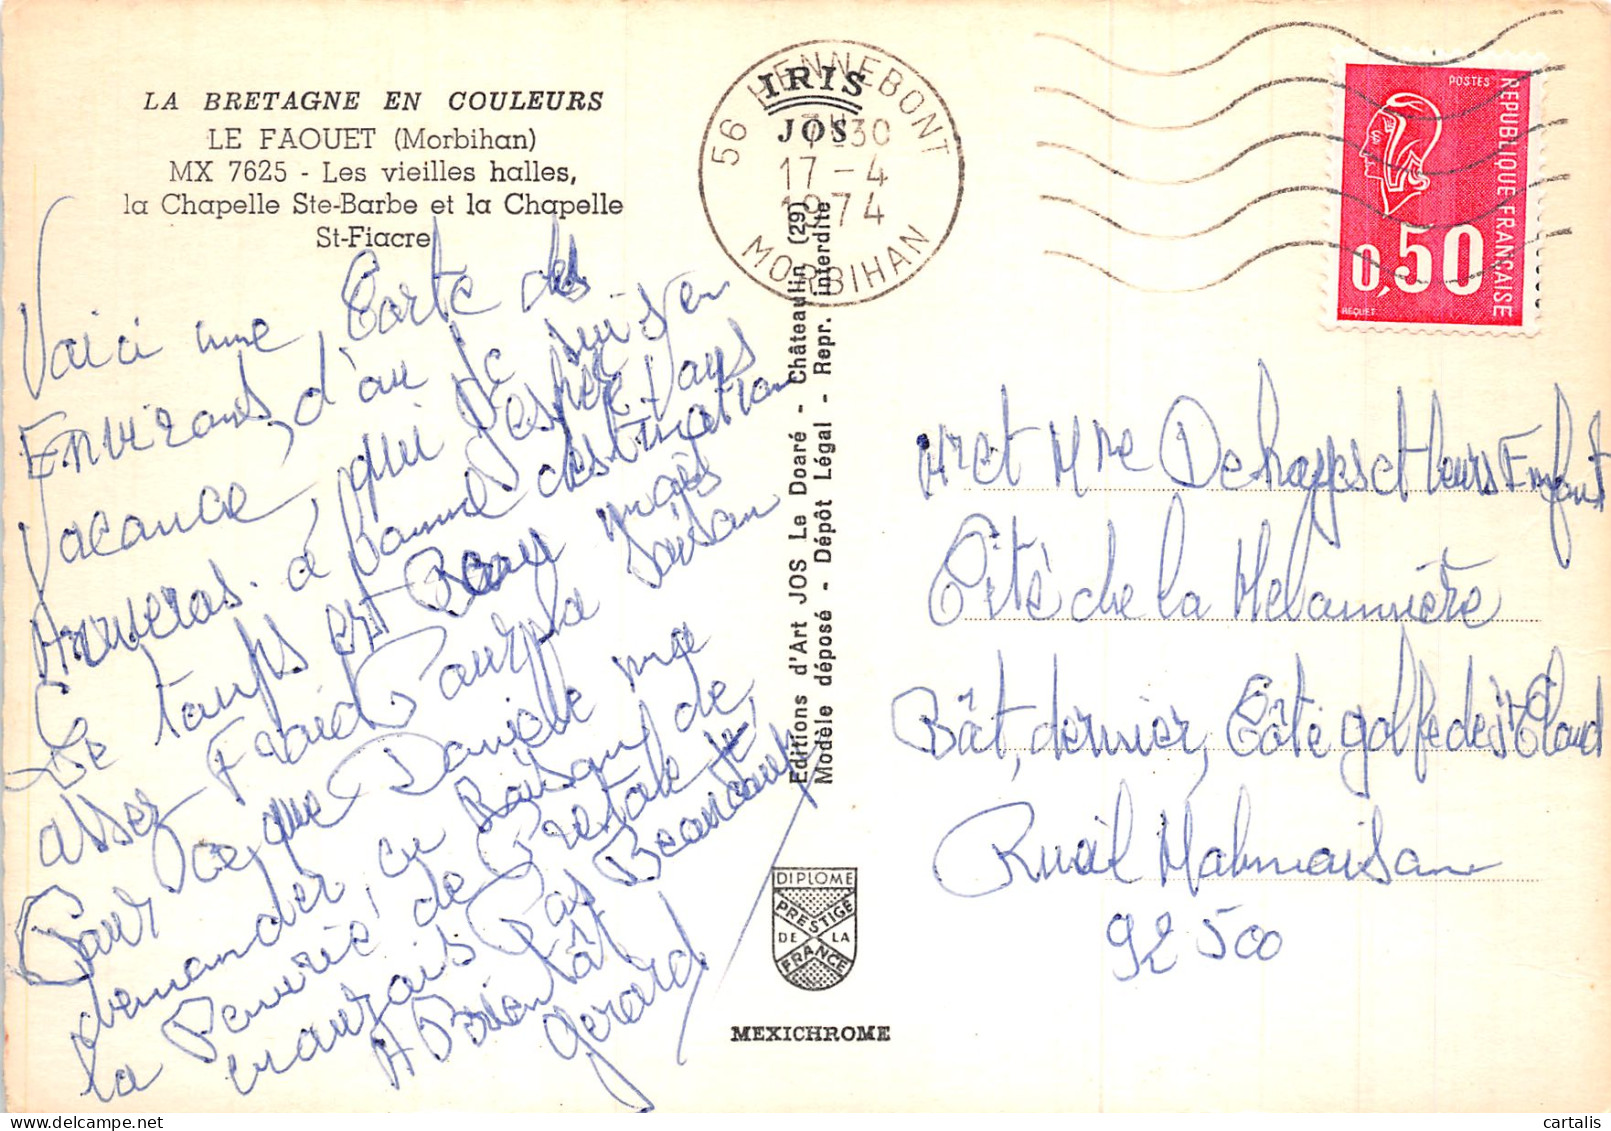 LA BRETAGNE EN COULEURS
LE FAOUET (Morbihan)
MX 7625 - Les vieilles halles,
la Chapelle Ste-Barbe et la Chapelle
St-Fiacre
Voici une Carte des
Environs, d'au Je suis en
Vacance, qui J'espére Vous
Arriveras. a bonne destination
Le temps est Beau mais
assez Froid Pour la saison
Pour ce que Danielle ma
demander, en Raison de,
la Penurie de
Pas Beaucoup
A Bientôt
Gerard
IRIS
JOS
56 HENNEBONT
7H30
17-4
1974
MORBIHAN
POSTES
REPUBLIQUE FRANCAISE
0,50
BEQUET
Editions d'Art JOS Le Doaré - Châteaulin (29)
Modèle déposé - Dépôt Légal - Repr. interdite
DIPLOME
PRESTIGE
DE LA
FRANCE
MEXICHROME
Mr et Mme Dehapps et leurs Enfant
Cité de la Melonnière
Bât, dernier, Côté golf de St Cloud
Rueil Malmaison
92 500
cartalis